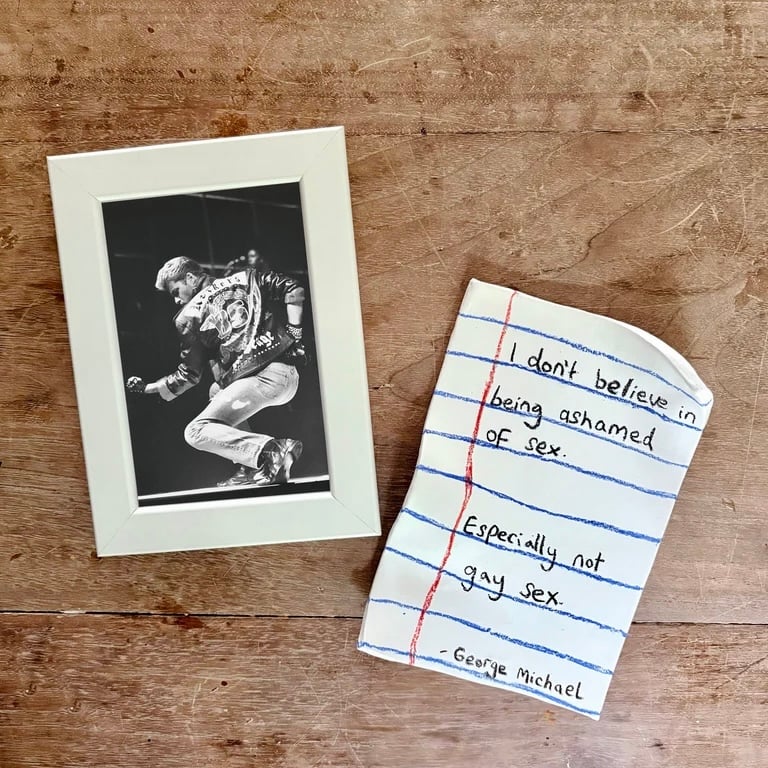 Rockers
I don't believe in
being ashamed
of sex.
Especially not
gay sex.
- George Michael